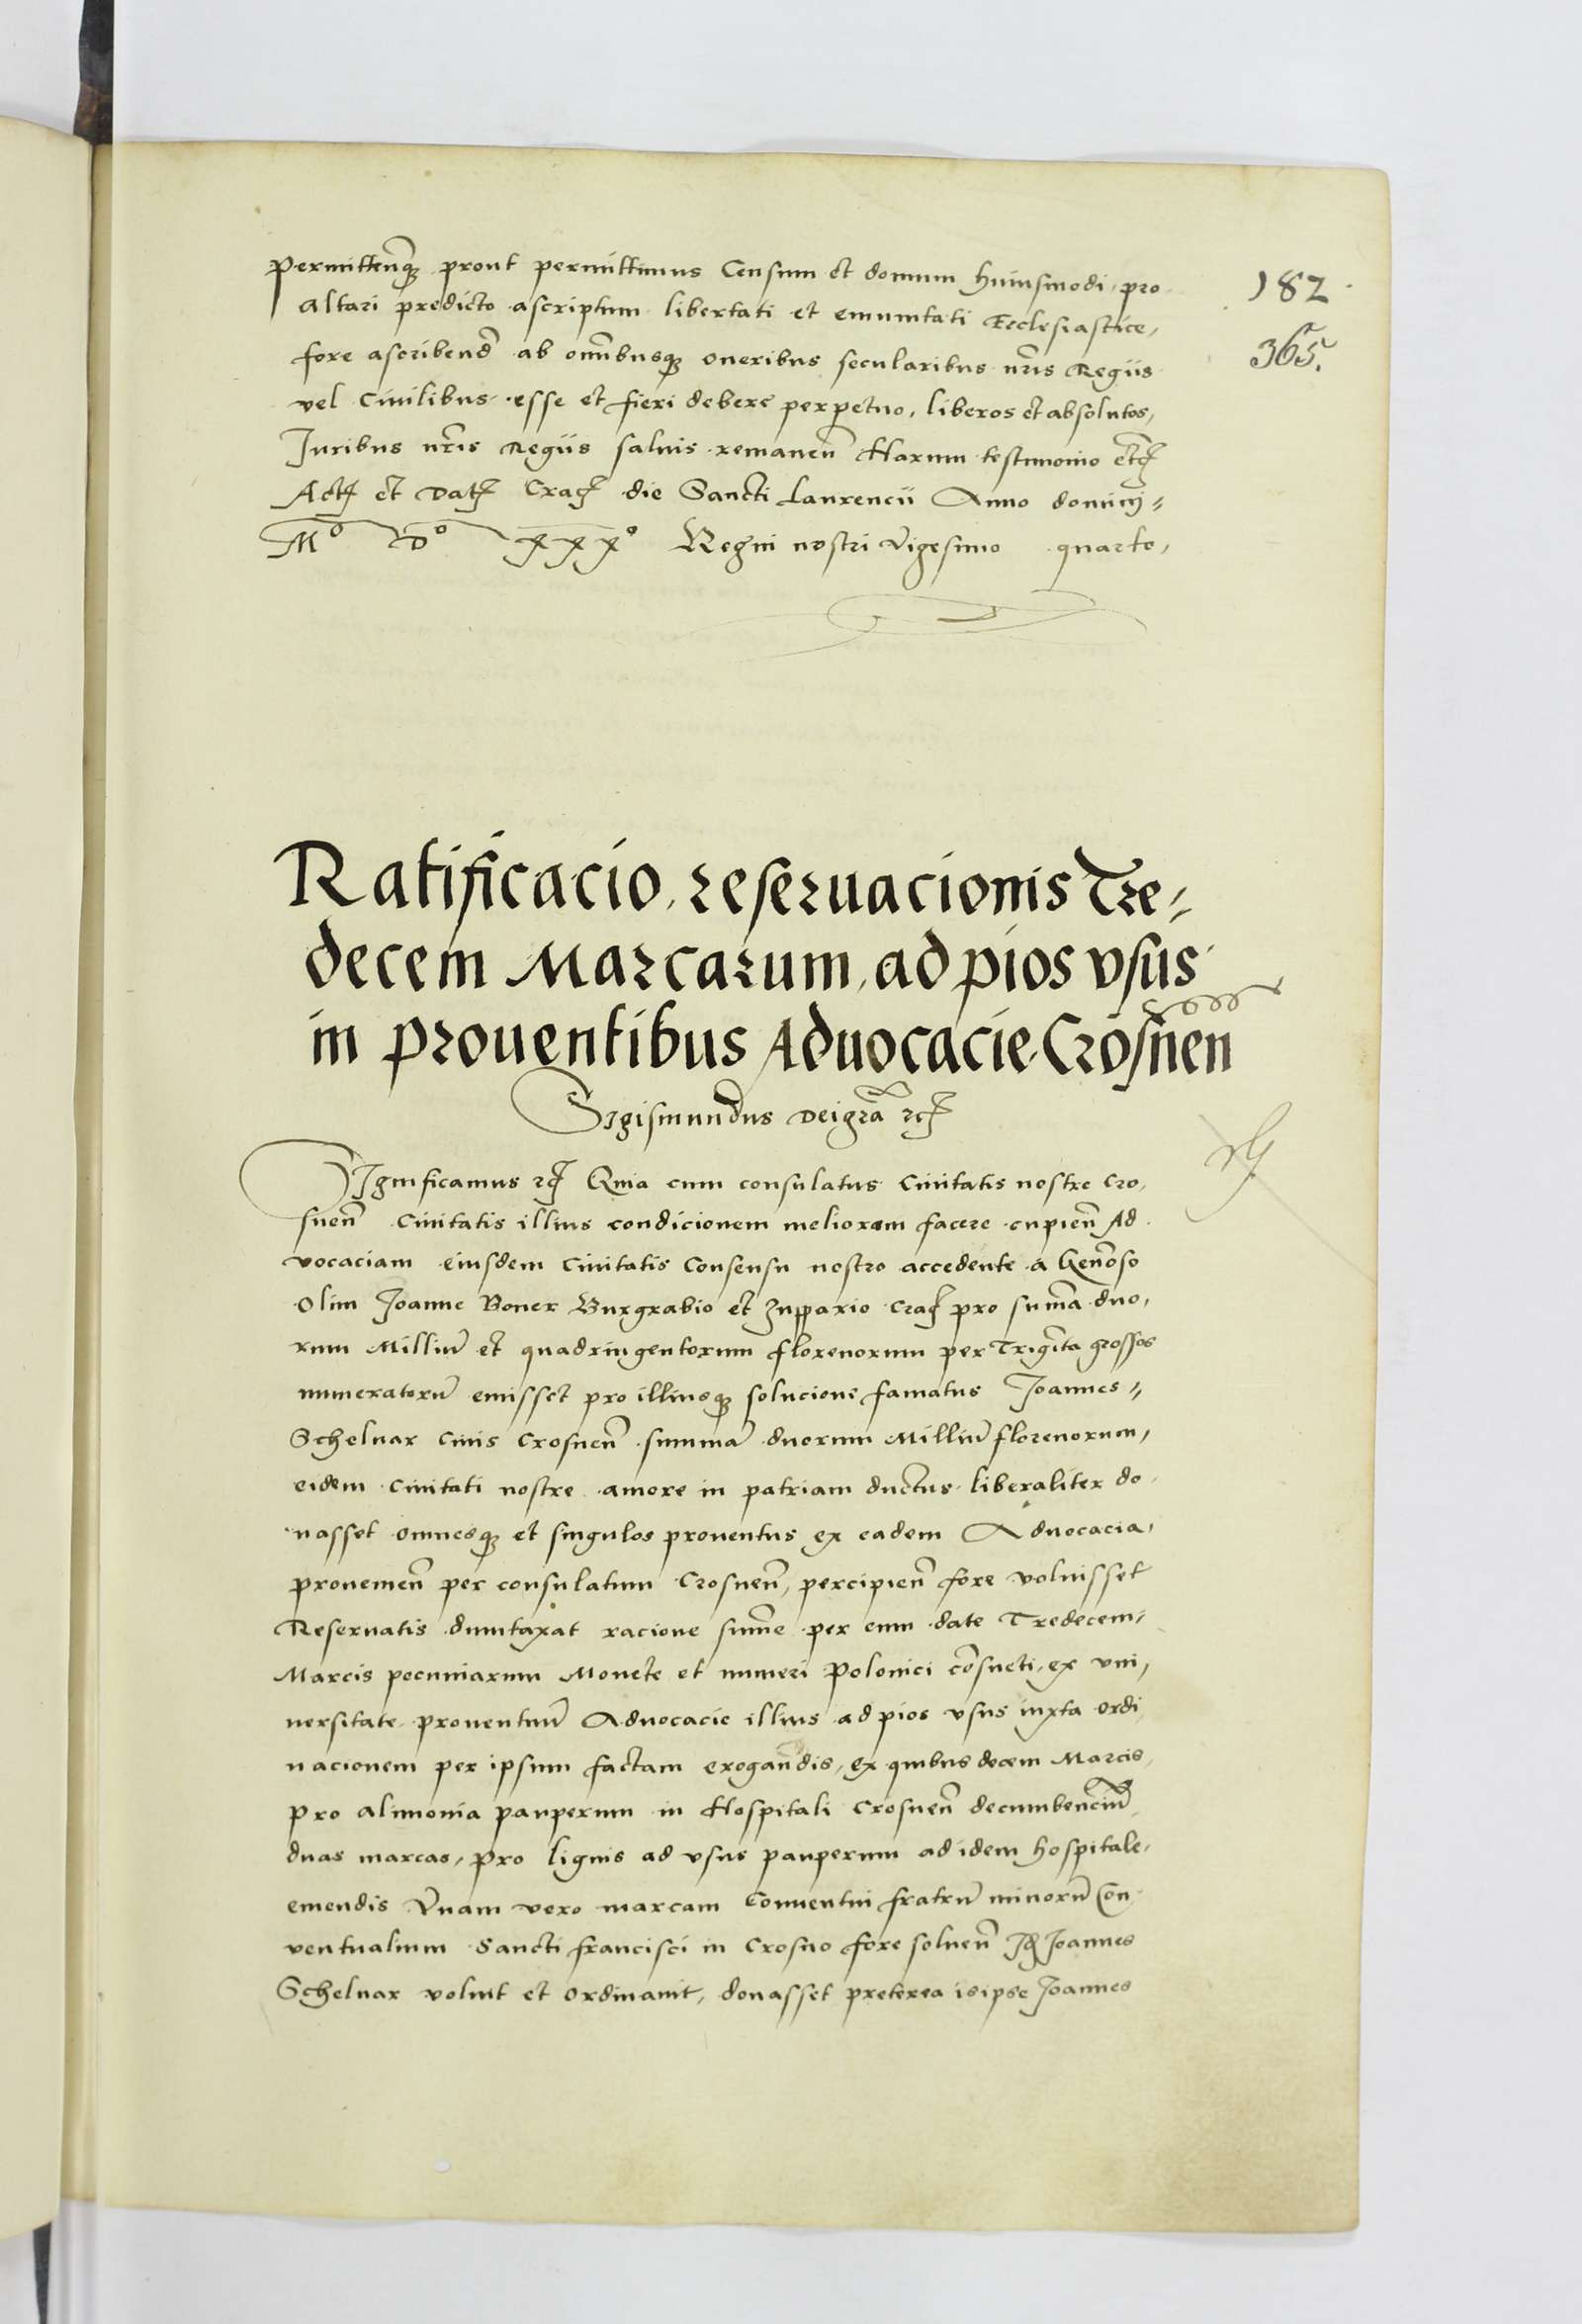 permitten̄q̃ prout permittimus Censum et domum huiusmodi, pro
182
altari predicto ascriptum libertati et emunitati Ecclesiastice,
365.
fore ascribend̄ ab omnibusq̃ oneribus secularibus nr̄is Regiis
vel Ciuilibus esse et fieri debere perpetuo, liberos et absolutos,
Juribus nr̄is Regiis saluis remanen̄ Harum testimonio etc̄
Actꝭ et Datꝭ Cracꝭ die Sancti Laurencii Anno domini
Mº Dº xxxº Regni nostri Vigesimo quarto,
Ratificacio, reseruacionis Tre=
decem Marcarum, ad pios vsus
in prouentibus Aduocacie Crosnen
Sigismundus Dei gr̄a ꝛcꝭ
SJgnificamus ꝛcꝭ Quia cum consulatus Ciuitatis nostre Cro,
snen̄ Ciuitatis illius condicionem meliorem facere cupien̄ Ad
vocaciam eiusdem Ciuitatis Consensu nostro accedente a Gen̄oso
Olim Joanne Boner Burgrabio et Zuppario Cracꝭ pro sum̄a duo,
rum Milliū et quadringentorum florenorum per Trigīta grossos
numeratorū emisset pro illiusq̃ solucione famatus Joannes=
Schelnar Ciuis Crosnen̄ summā duorum Milliū florenorum,
eidem Ciuitati nostre amore in patriam ductus liberaliter do
nasset omnesq̃ et singulos prouentus ex eadem Aduocacia,
prouenien̄ per consulatum Crosnen̄, percipien̄ fore voluisset
Reseruatis dumtaxat racione sum̄e per eum date Tredecem,
Marcis pecuniarum Monete et numeri Polonici cōsueti, ex vni,
uersitate prouentuū Aduocacie illius ad pios vsus iuxta ordi
nacionem per ipsum factam erogandis, Ex quibus decem Marcis,
pro alimonia pauperum in Hospitali Crosnen̄ decumbenciū
duas marcas, pro lignis ad vsus pauperum ad idem hospitale,
emendis Vnam vero marcam Conuentui fratrū minorū Con
ventualium Sancti francisci in Crosno fore soluen̄ Jd̄ Joannes
Schelnar voluit et ordinauit, donasset preterea is ipse Joannes